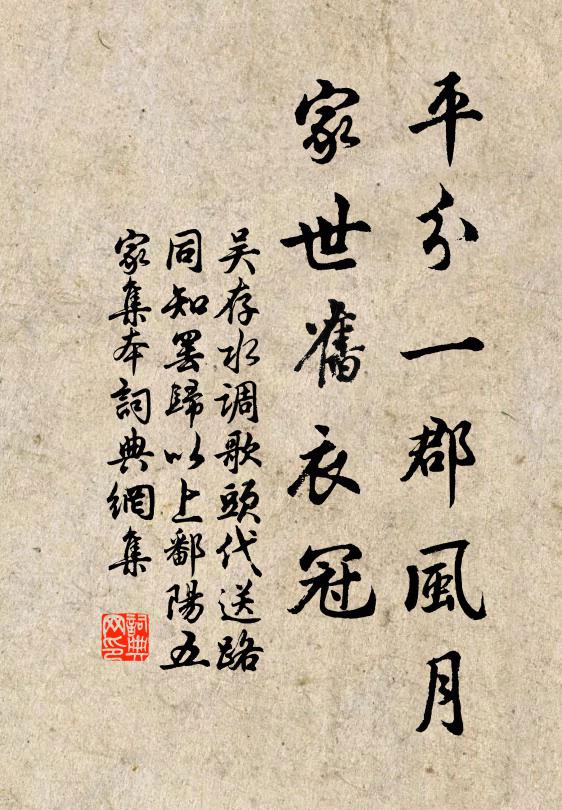 平分一郡風月
家世舊衣冠
吴存水调歌頭代送路
同知罢歸以上鄱陽五
家集本詞典網集
詞典
网印